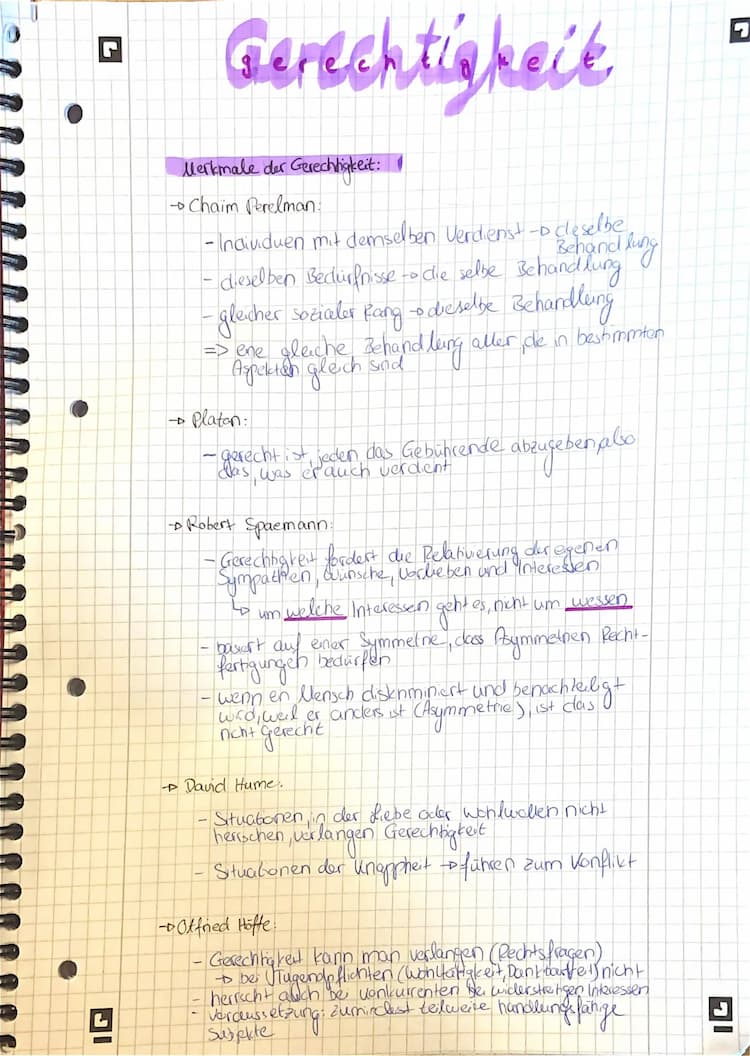 Gerechtigkeit
gerechtigkeit
Merkmale der Gerechtigkeit:
→ Chaim Perelman:
- Individuen mit demselben Verdienst → dieselbe
Behandlung
- dieselben Bedürfnisse → die selbe Behandlung
- gleicher sozialer Rang → dieselbe Behandlung
=> eine gleiche Behandlung aller, die in bestimmten
Aspekten gleich sind
→ Platon:
- gerecht ist, jeden das Gebührende abzugeben, also
das, was er auch verdient
→ Robert Spaemann:
- Gerechtigkeit fordert die Relativierung der eigenen
Sympathien, Wünsche, Vorlieben und Interessen
↳ um welche Interessen geht es, nicht um wessen
- basiert auf einer Symmetrie, dass Asymmetrien Recht-
fertigungen bedürfen
- wenn ein Mensch diskriminiert und benachteiligt
wird, weil er anders ist (Asymmetrie), ist das
nicht gerecht
→ David Hume:
- Situationen, in der Liebe oder Wohlwollen nicht
herrschen, verlangen Gerechtigkeit
- Situationen der Knappheit → führen zum Konflikt
→ Otfried Höffe:
- Gerechtigkeit kann man verlangen (Rechtsfragen)
→ bei Tugendpflichten (Wohltätigkeit, Dankbarkeit) nicht
- herrscht auch bei Konkurrenten bei widerstreitigen Interessen
- Voraussetzung: zumindest teilweise handlungsfähige
Subjekte